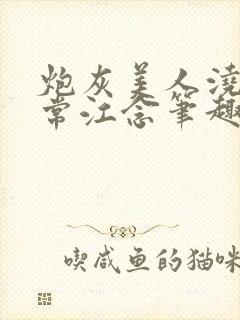 炮灰美人浇
常江念笔趣
喫咸鱼的猫咪